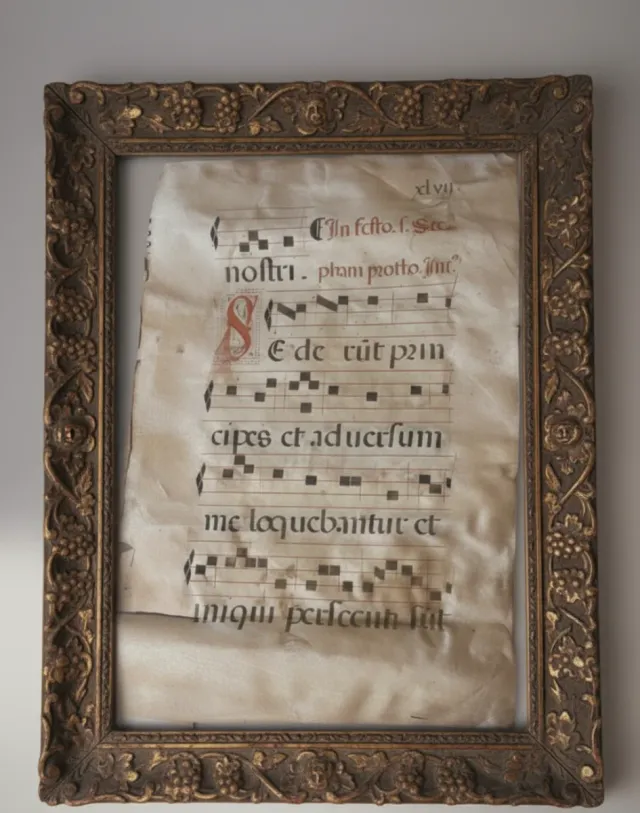 xlvij.
¶In festo. s. Ste-
nostri. phani protto. Jntꝰ.
SEderūt prin
cipes et aduersum
me loquebantur et
iniqui persecuti sūt